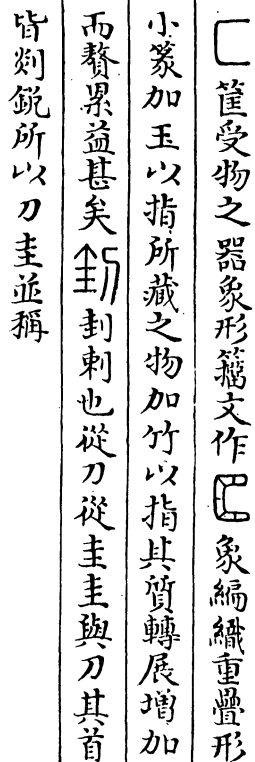 匚筐受物之器象形籀文作𠥓象編織重疊形
小篆加玉以指所藏之物加竹以指其質轉展增加
而贅累益甚矣刲刲刺也從刀從圭圭與刀其首
皆剡銳所以刀圭並稱